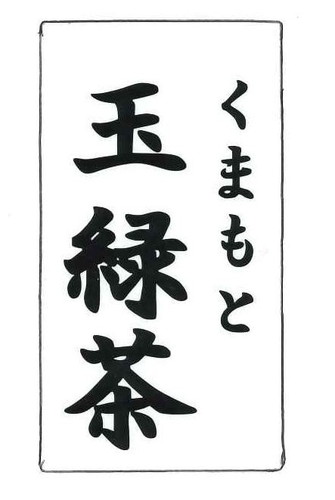 くまもと
玉緑茶